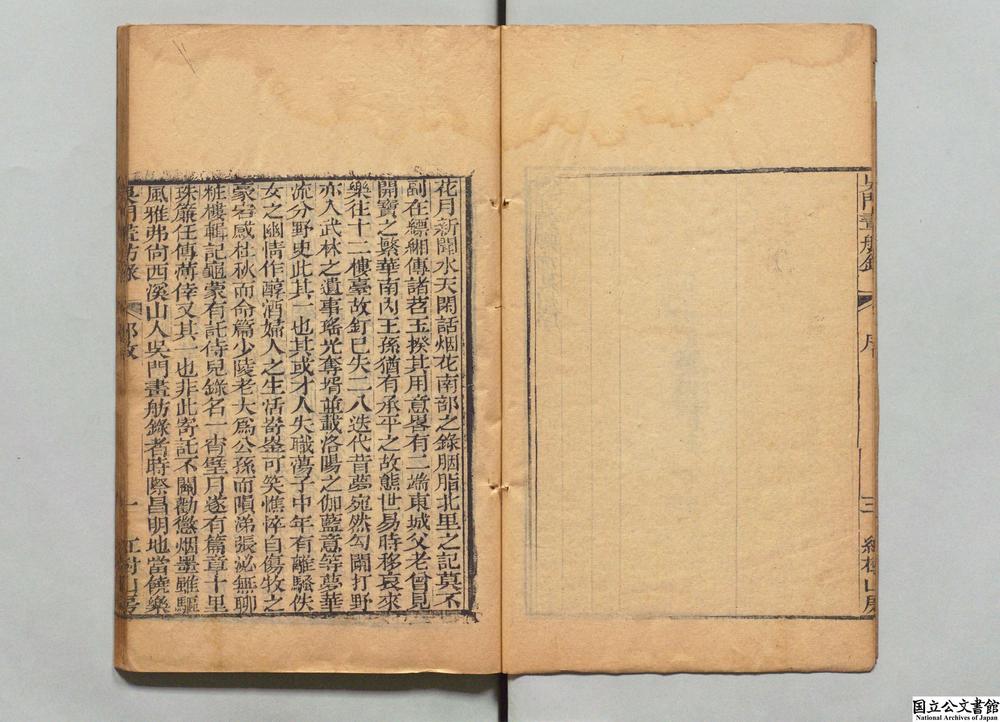 吳門畫舫錄
序
三
紅樹山房
花月新聞水天閑話烟花南部之錄胭脂北里之記莫不
副在縹緗傳諸苕玉揆其用意畧有二耑東城父老曾見
開寶之繁華南內王孫猶有承平之故態世易時移哀來
樂往十二樓臺故釘已失二八迭代昔夢宛然勾闌打野
亦入武林之遺事瑤光奪壻並載洛陽之伽藍意等夢華
流分野史此其一也其或才人失職蕩子中年有離騷佚
女之幽情作醇酒婦人之生活嵜崟可笑憔悴自傷牧之
豪宕感杜秋而命篇少陵老大爲公孫而隕涕張泌無聊
粧樓輯記龜蒙有託侍兒錄名一宵璧月遂有篇章十里
珠簾任傳薄倖又其一也非此寄託不關勸懲烟墨雖驅
風雅弗尙西溪山人吳門畫舫錄者時際昌明地當饒樂
吳門畫舫錄
一
紅樹山房
国立公文書館
National Archives of Japan